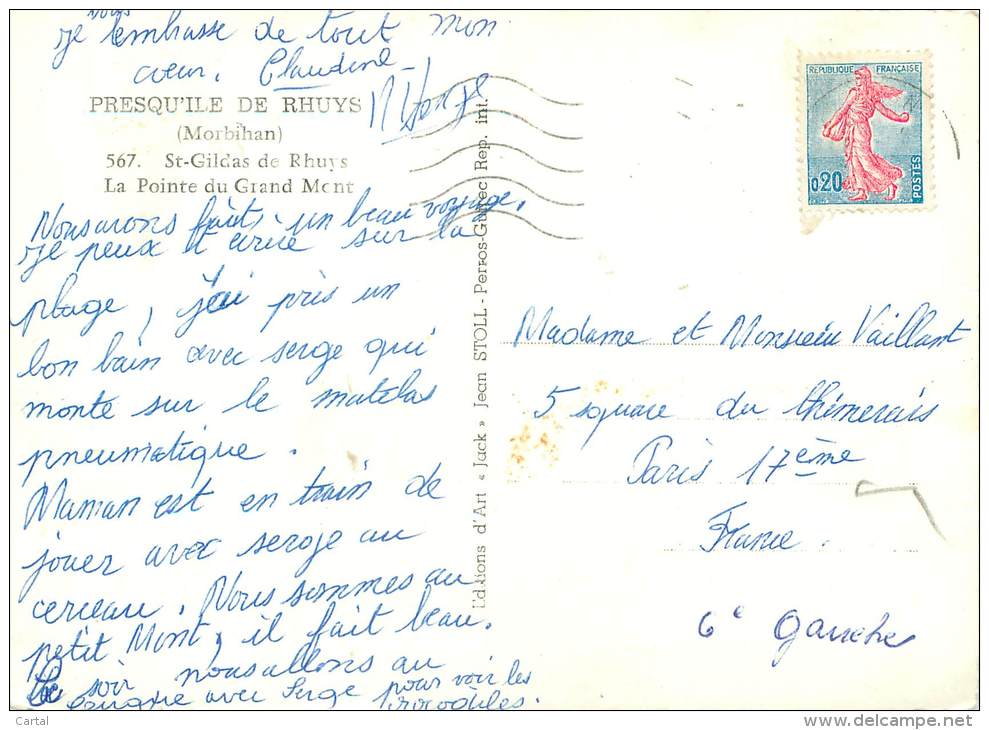 Nous avons faits, un beau voyage.
je peux t'écrire sur la
plage, j'ai près un
bon bain avec serge qui
monte sur le matelas
pneumatique.
Maman est en train de
jouer avec serge au
cerceau. Nous sommes au
petit Mont, il fait beau.
Ce soir nous allons au
cirque avec Serge pour voir les
crocodiles.
je vous embrasse de tout mon
cœur. Claudine
PRESQU'ILE DE RHUYS
(Morbihan)
567. St-Gildas de Rhuys
La Pointe du Grand Mont
Editions d'Art « Jack » Jean STOLL - Perros-Guirec Rep. int.
REPUBLIQUE FRANÇAISE
0,20
POSTES
Madame et Monsieur Vaillant
5 square du thimerais
Paris 17ème
France.
6e Gauche
Cartal
www.delcampe.net